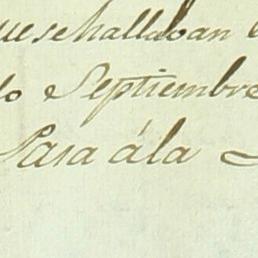 uesehallaban
do Septiembre
Pasa ála